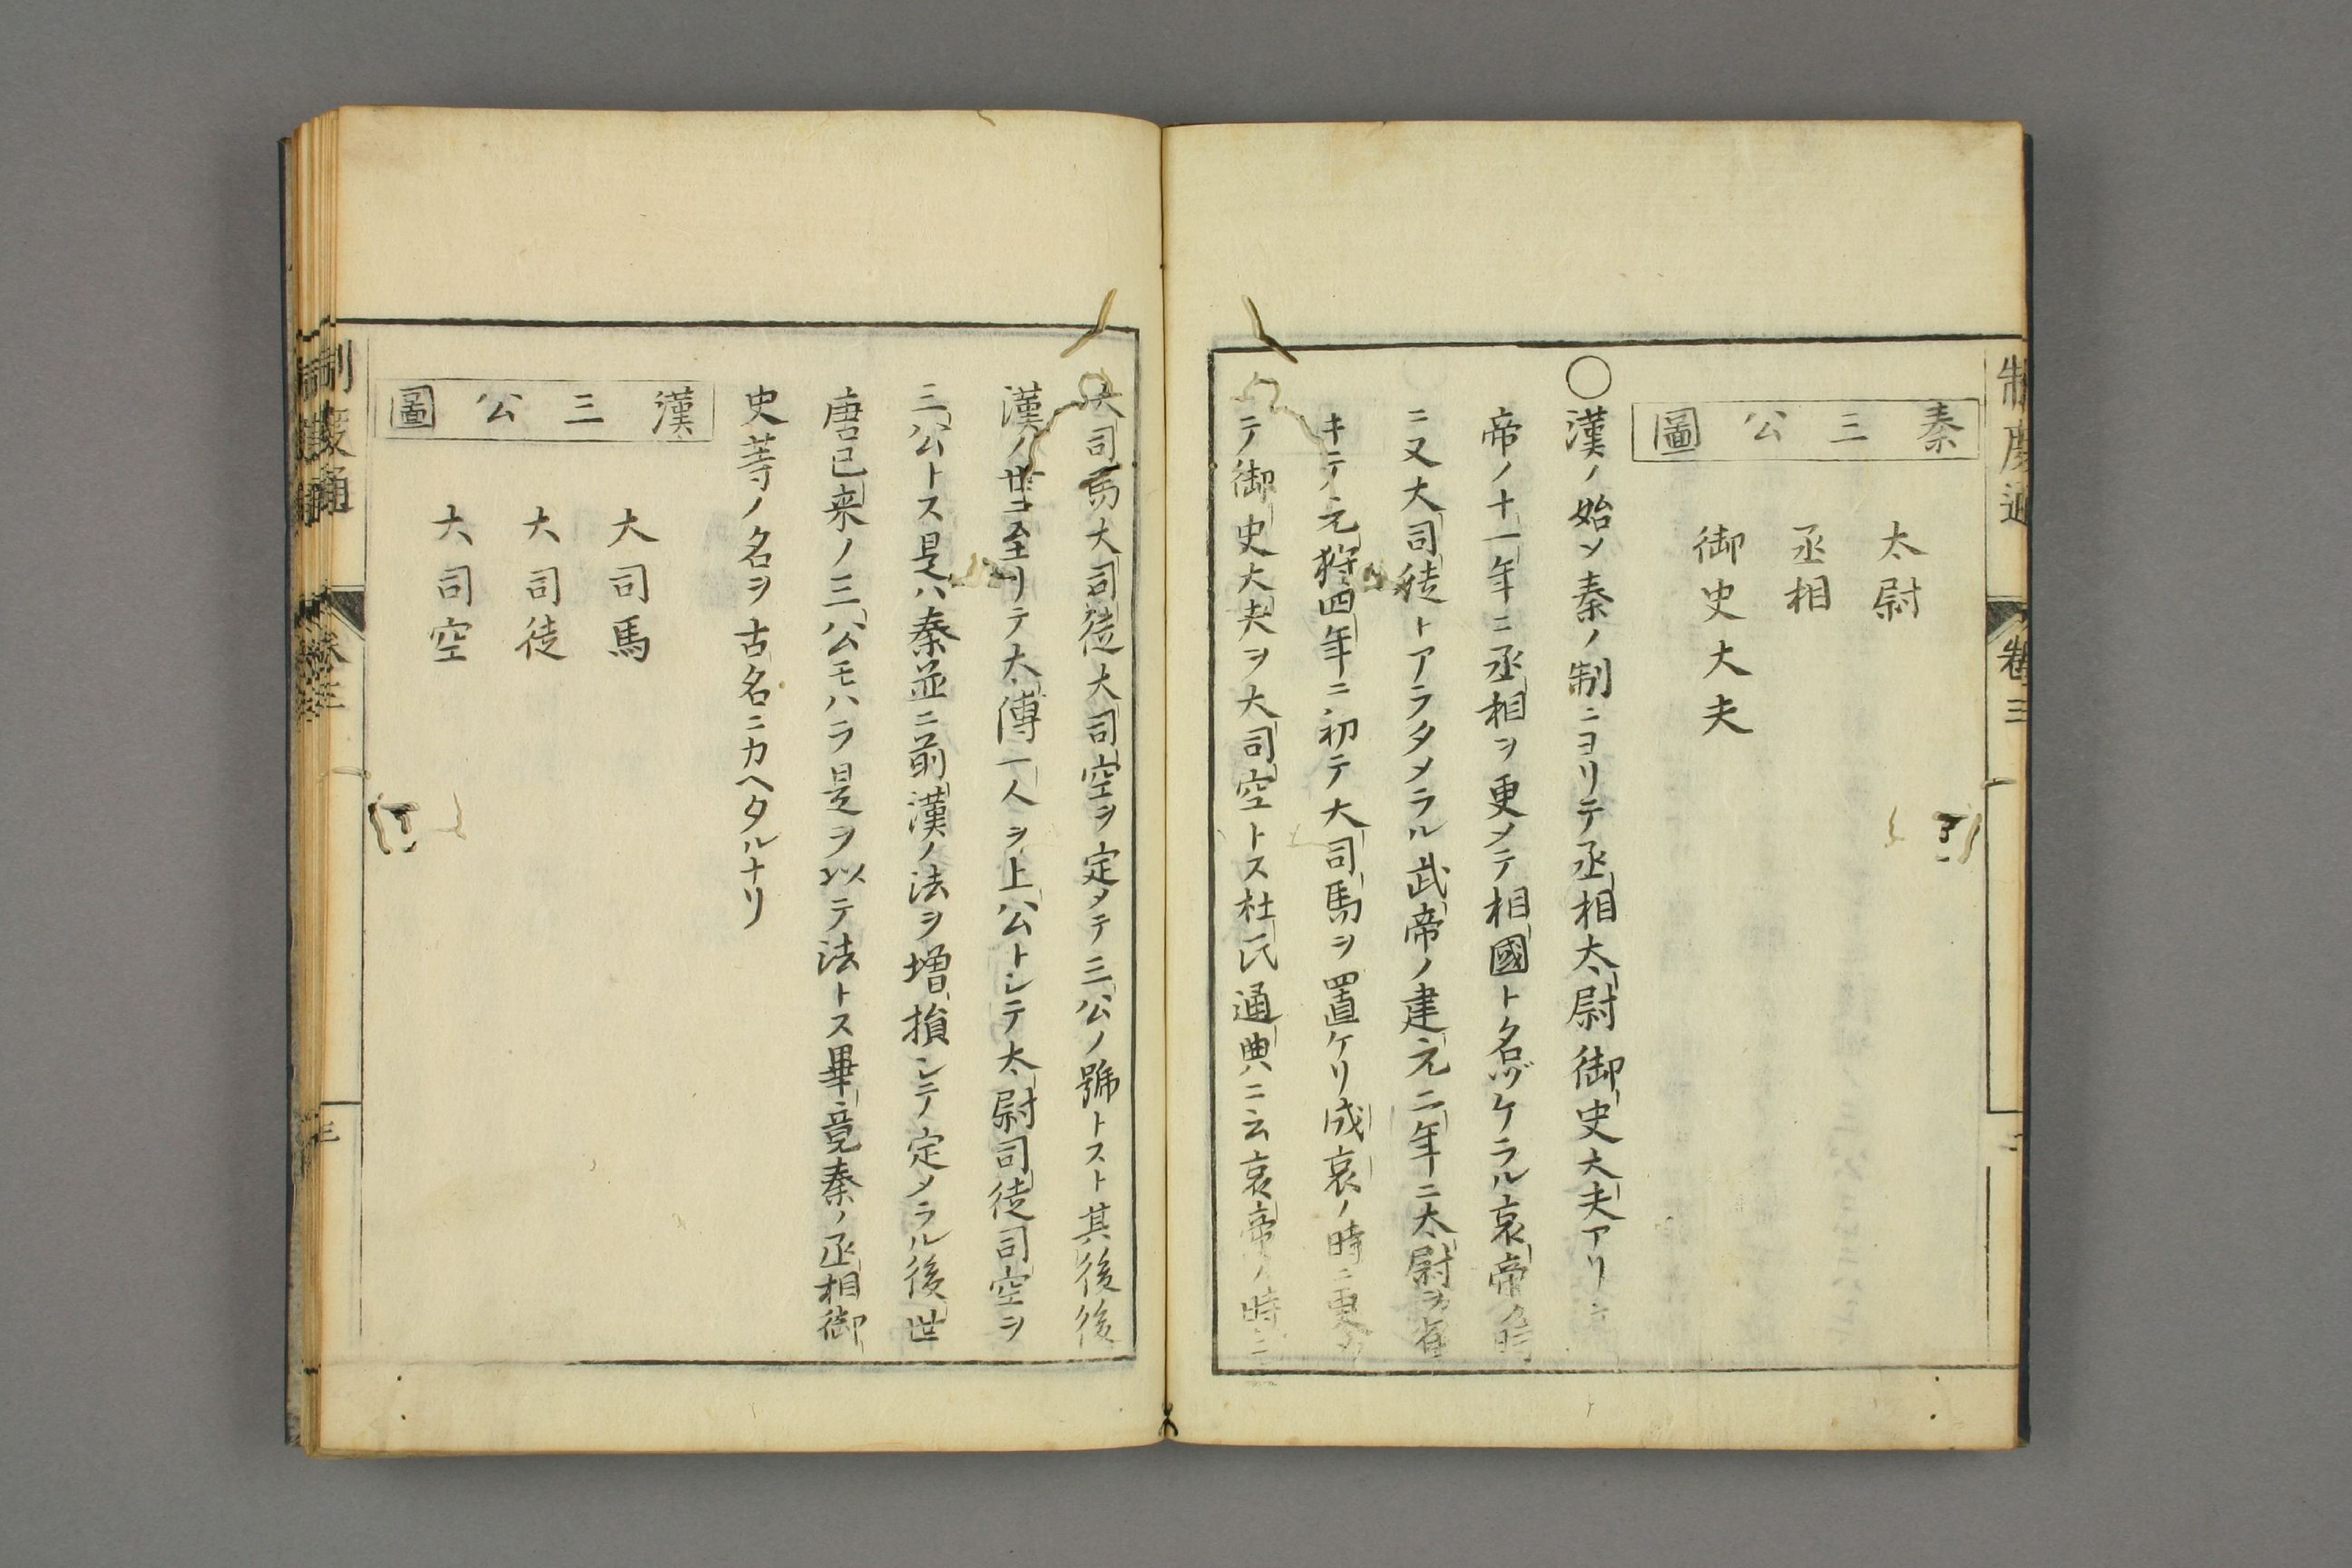 秦三公圖
太尉
丞相
御史大夫
○漢ノ始メ秦ノ制ニヨリテ丞相太尉御史大夫アリ
帝ノ十一年ニ丞相ヲ更メテ相國ト名ヅケラル哀帝ノ時
ニ又大司徒トアラタメラル武帝ノ建元二年ニ太尉ヲ省
キテ元狩四年ニ初テ大司馬ヲ置ケリ成哀ノ時ニ更メ
テ御史大夫ヲ大司空トス杜氏通典ニ云哀帝ノ時ニ
大司馬大司徒大司空ヲ定メテ三公ノ號トスト其後後
漢ノ世ニ至リテ太傅一人ヲ上公トシテ太尉司徒司空ヲ
三公トス是ハ秦並ニ前漢ノ法ヲ増損シテ定メラル後世
唐已来ノ三公モハラ是ヲ以テ法トス畢竟秦ノ丞相御
史等ノ名ヲ古名ニカヘタルナリ
漢三公圖
大司馬
大司徒
大司空
制度通
卷三
三